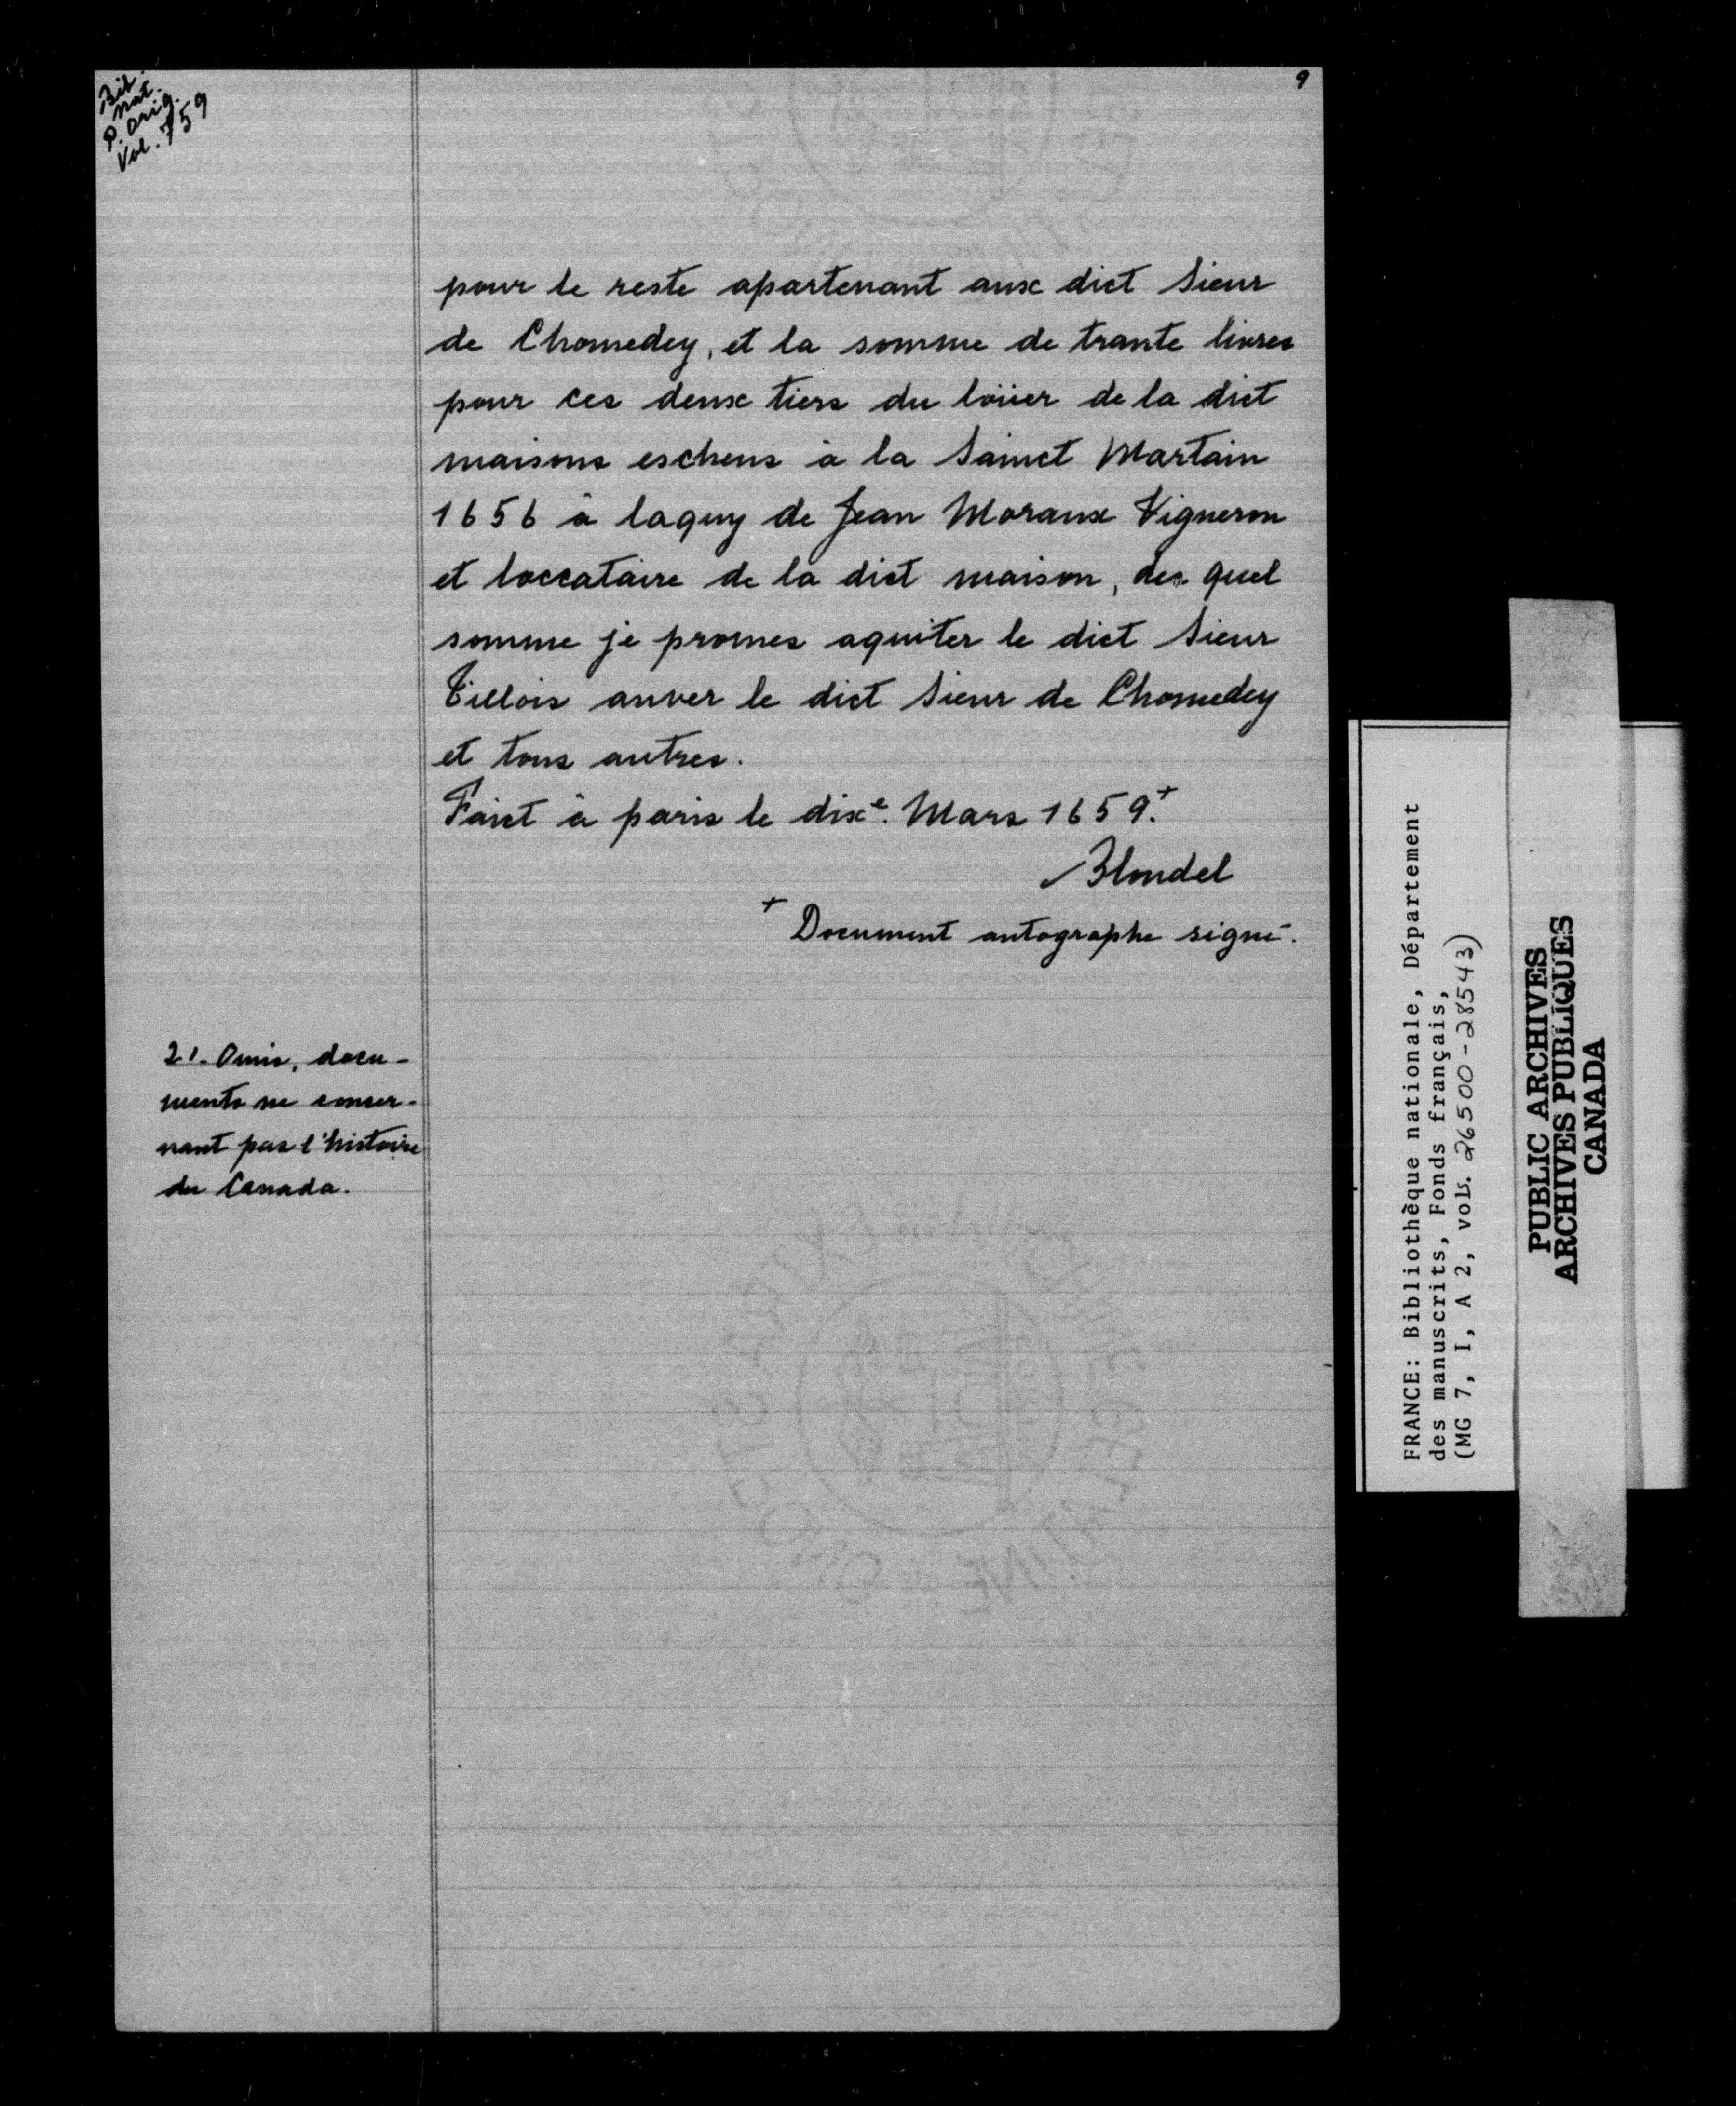 Bib.
nat.
P. orig.
Vol. 759
9
pour le reste apartenant aux dict Sieur
de Chomedey, et la somme de trante livres
pour ces deux tiers du loüer de la dict
maisons escheus à la Sainct Martain
1656 à laquy de Jean Moraux Vigneron
et loccataire de la dict maison, des quel
somme je promes aquiter le dict Sieur
Tillois anver le dict Sieur de Chomedey
et tous autres.
Faict à paris le dixe. Mars 1659.+
Blondel
+ Document autographe signé.
21. Omis, docu-
ments ne concer-
nant pas l'histoire
du Canada.
FRANCE: Bibliothèque nationale, Département
des manuscrits, Fonds français,
(MG 7, I, A 2, vols. 26500-28543)
PUBLIC ARCHIVES
ARCHIVES PUBLIQUES
CANADA